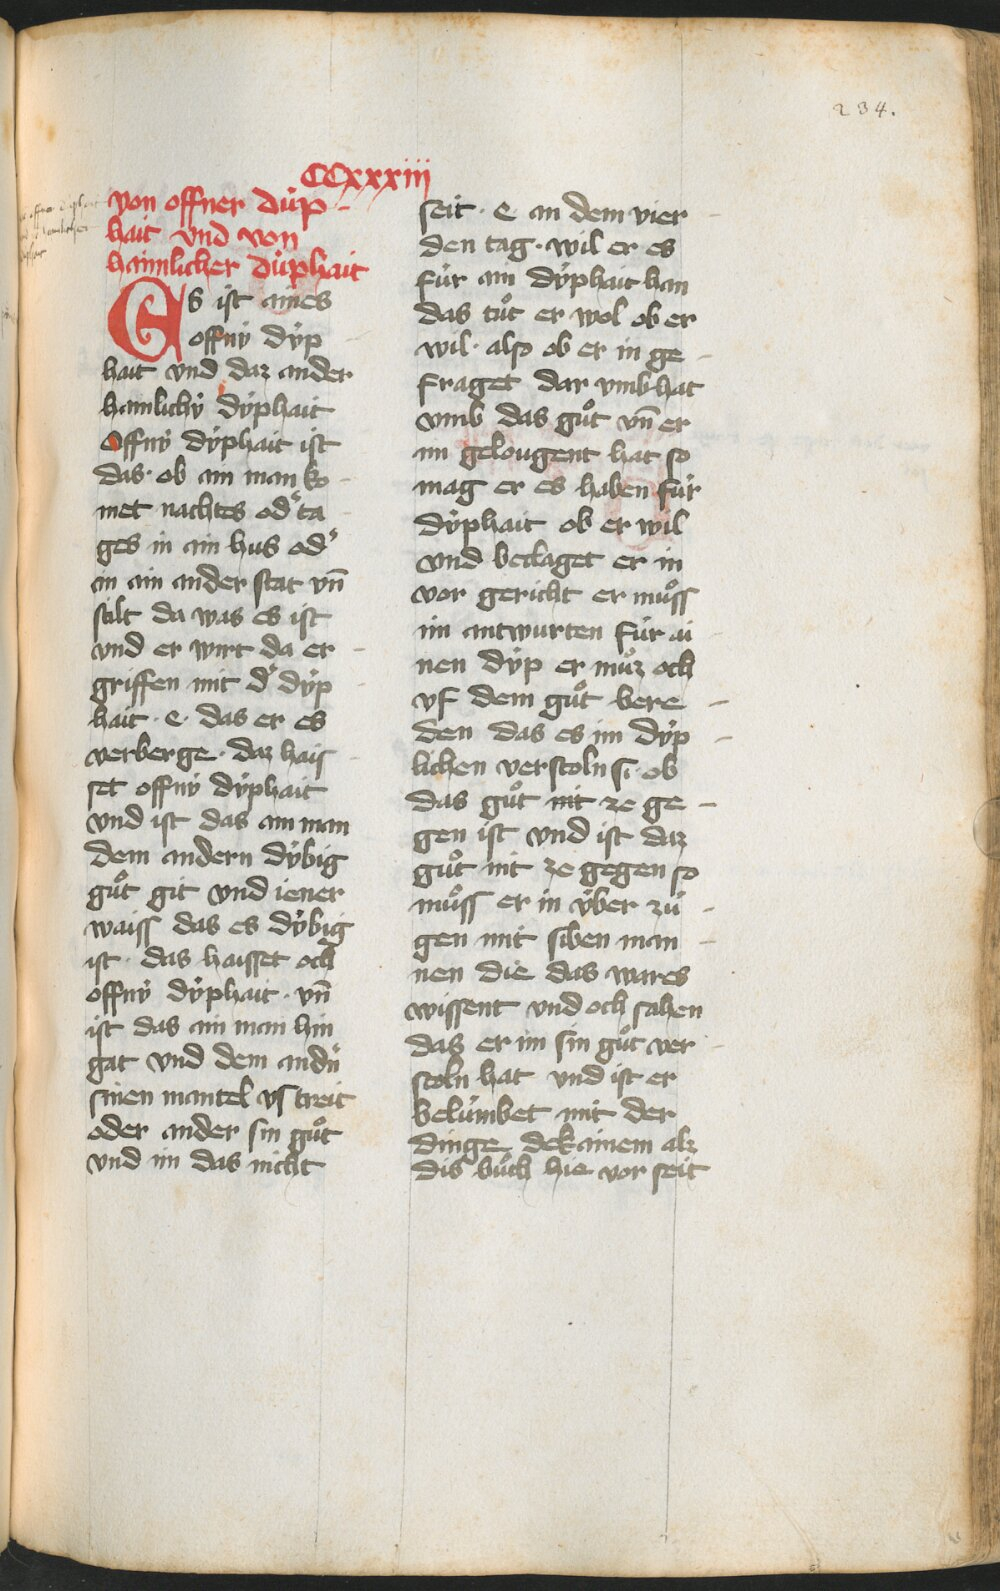 234.
CCxxxiii
von offner dúp-
hait vnd von
haimlicher dúphait
Es ist aines
offný dýp
hait vnd daz ander
hainlichý dýphait
Offný dýphait ist
das· ob ain man ko-
met nachtes odˀ ta
ges in ain hus odˀ
in ain ander stat vn̄
stilt da was es ist
vnd er wirt da er-
griffen mit dˀ dýp-
hait· e· das er es
verberge· daz hais-
set offný dýphait
vnd ist das ain man
dem andern dýbig
guͦt git vnd iener
waiss das es dýbig
ist· das haisset och
offný dýphait· vn̄
ist das ain man hin
gat vnd dem andn̄
sinen mantel vs treit
oder ander sin guͦt
vnd im das nicht
seit· e an dem vier-
den tag· wil er es
für ain dýphait han
das tuͦt er wol ob er
wil· also ob er in ge-
fraget dar vmb hat
vmb das guͦt vn̄ er
im gelougent hat so
mag er es haben für
dýphait ob er wil
vnd beclaget er in
vor gericht er muͦss
im antwurten für ai-
nen dýp er muͦz och
vf dem guͦt bere-
den das es im dýp-
lichen verstoln si· ob
das guͦt nit ze ge-
gen ist vnd ist daz
guͦt nit ze gegen so
muͦss er in ýber zú-
gen mit siben man-
nen die das wares
wissent vnd och sahen
das er im sin guͦt ver-
stoln hat vnd ist er
belúmbet mit der
dinge dekainem alz
dis buͦch hie vor seit